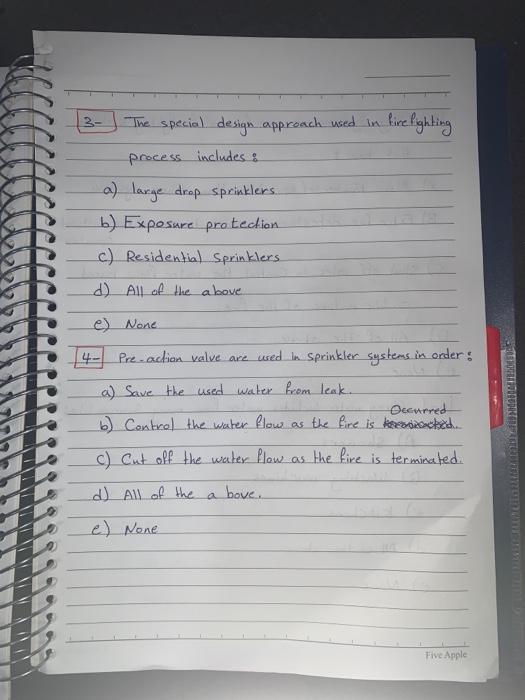 3- The special design approach used in firefighting
process includes :
a) large drop sprinklers
b) Exposure protection
c) Residential Sprinklers
d) All of the above
e) None
4- Pre-action valve are used in sprinkler systems in order :
a) Save the used water from leak.
Occurred
b) Control the water flow as the fire is
c) Cut off the water flow as the fire is terminated.
d) All of the above.
e) None
Five Apple